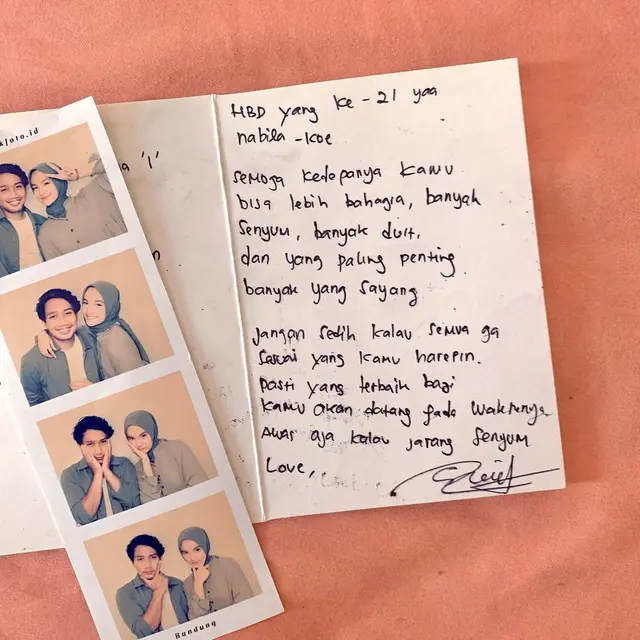 foto.id
a '1'
HBD yang ke - 21 yaa
nabila - koe
semoga kedepanya kamu
bisa lebih bahagia, banyak
senyum, banyak duit,
dan yang paling penting
banyak yang sayang
Jangan sedih kalau semua ga
sesuai yang kamu harepin.
pasti yang terbaik bagi
kamu akan datang pada waktunya
Awas aja kalau jarang senyum
Love,
Bandung